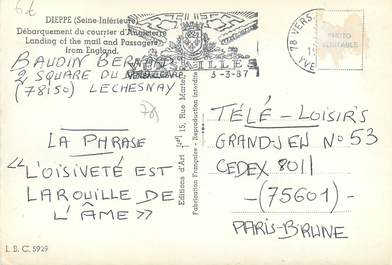 6€
DIEPPE (Seine-Inférieure)
Débarquement du courrier d'Angleterre
Landing of the mail and Passagers
from England.
BAUDIN BERNARD
2, SQUARE DU
(78150) LECHESNAY
LA PHRASE
"L'OISIVETÉ EST
LAROUILLE DE
L'ÂME"
I. B. C. 5929
Editions d'Art 15, Rue
Fabrication Française - Reproduction interdite
VERSAILLES
5-3-87
78 VERS
YVE
PHOTO
VERITABLE
TÉLÉ-LOISIRS
GRAND-JEU N° 53
CEDEX 8011
-(75601)-
PARIS-BRUNE